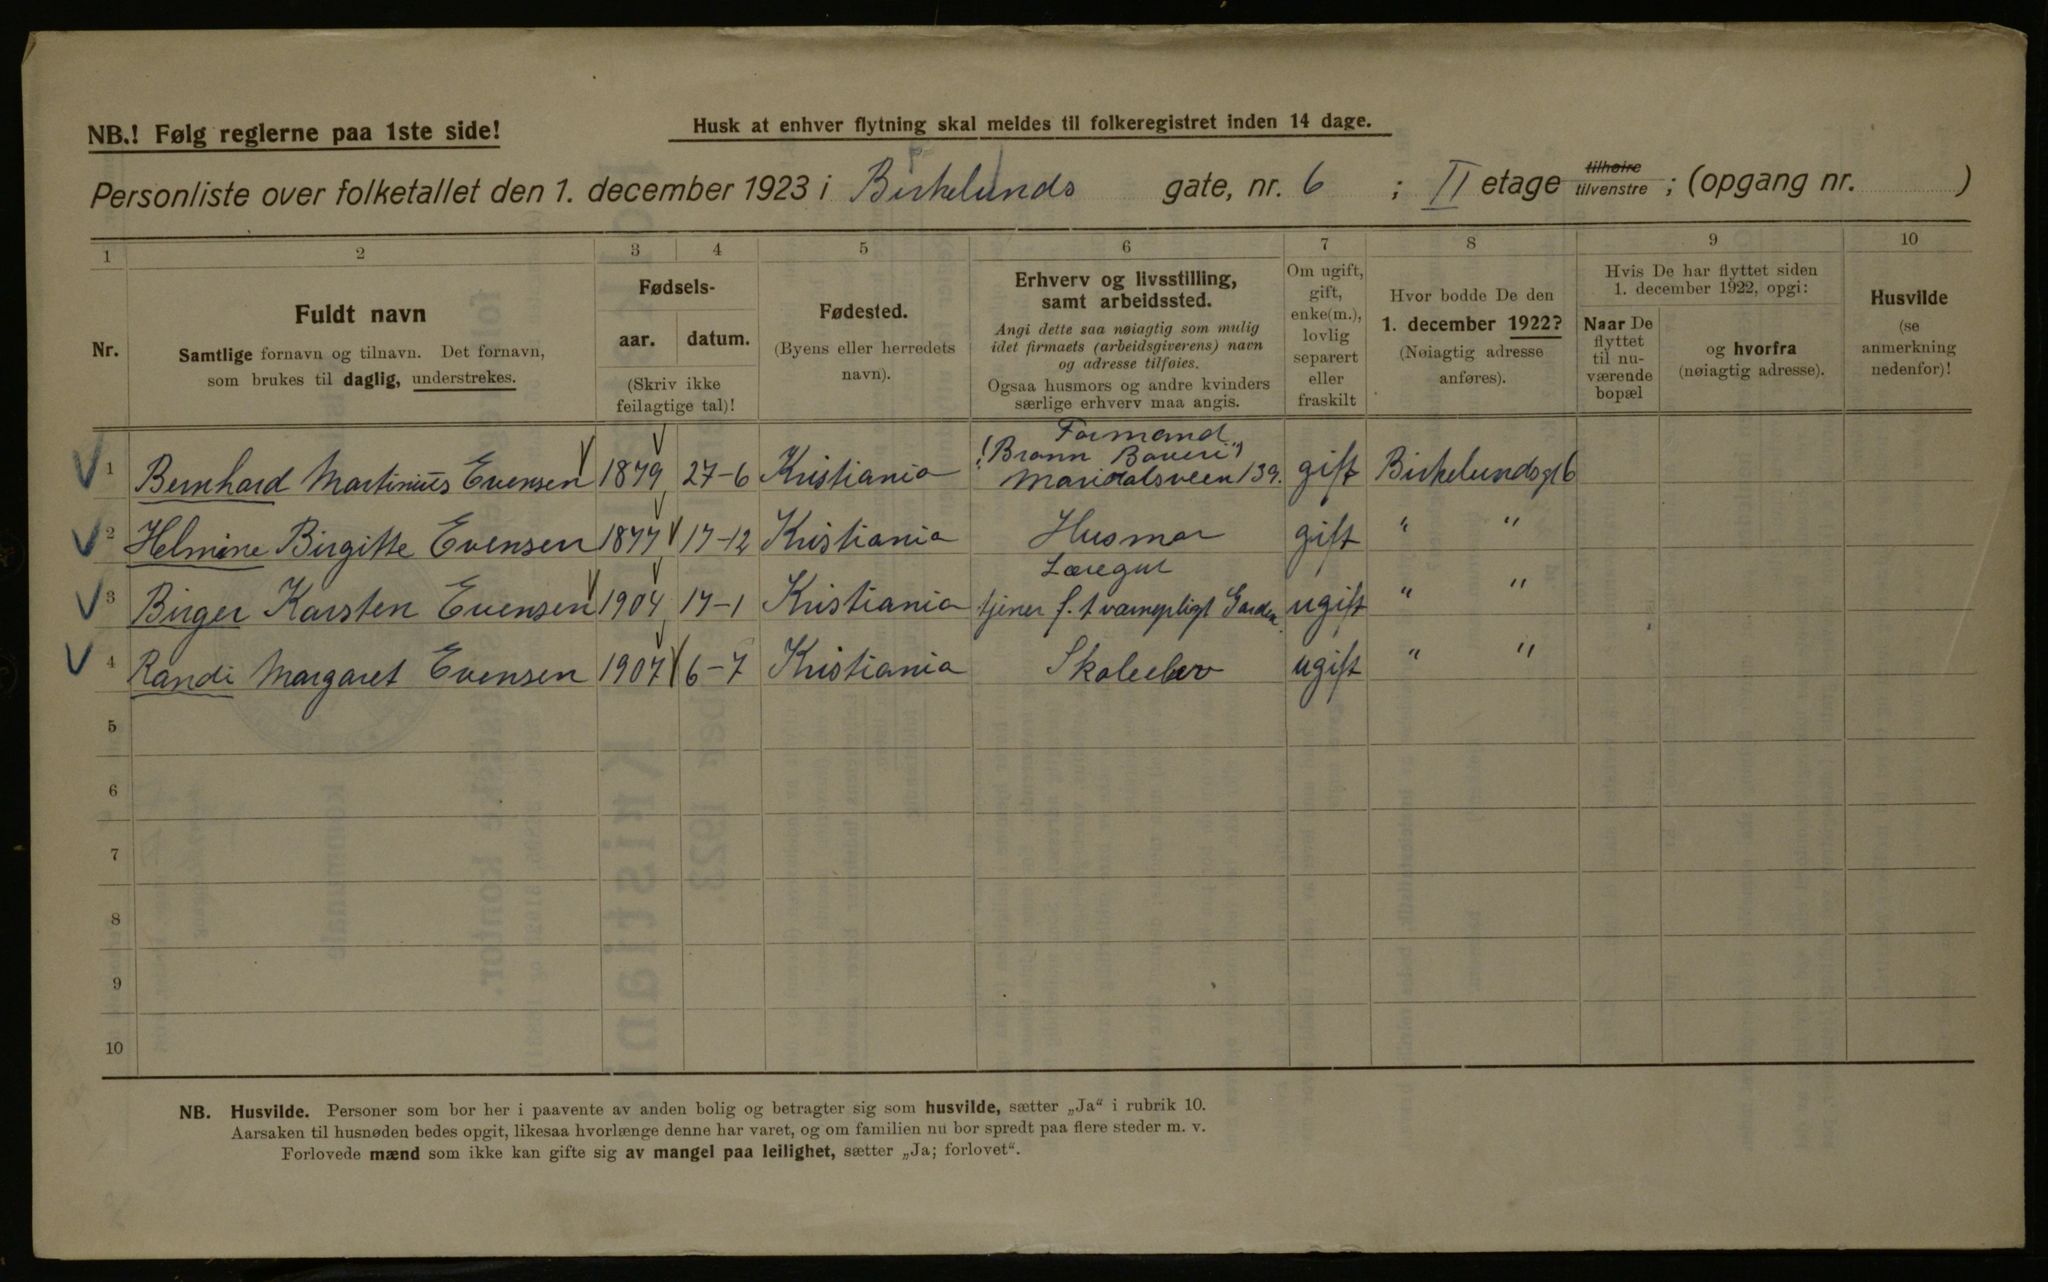 NB.! Følg reglerne paa 1ste side!
Husk at enhver flytning skal meldes til folkeregistret inden 14 dage.
Personliste over folketallet den 1. december 1923 i Birkelunds gate, nr. 6 ; II etage tilhøire tilvenstre ; (opgang nr. )
1 2 3 4 5 6 7 8 9 10
Nr.
Fuldt navn
Samtlige fornavn og tilnavn. Det fornavn,
som brukes til daglig, understrekes.
Fødsels-
aar. datum.
(Skriv ikke
feilagtige tal)!
Fødested.
(Byens eller herredets
navn).
Erhverv og livsstilling,
samt arbeidssted.
Angi dette saa nøiagtig som mulig
idet firmaets (arbeidsgiverens) navn
og adresse tilføies.
Ogsaa husmors og andre kvinders
særlige erhverv maa angis.
Om ugift,
gift,
enke(m.),
lovlig
separert
eller
fraskilt
Hvor bodde De den
1. december 1922?
(Nøiagtig adresse
anføres).
Hvis De har flyttet siden
1. december 1922, opgi:
Naar De
flyttet
til nu-
værende
bopæl
og hvorfra
(nøiagtig adresse).
Husvilde
(se
anmerkning
nedenfor)!
Formand
1 Bernhard Martinius Evensen 1879 27-6 Kristiania "Brann Boveri" Maridalsveen 139. gift Birkelundsgt 6
2 Helmine Birgitte Evensen 1877 17-12 Kristiania Husmor gift " "
Læregut
3 Birger Karsten Evensen 1904 17-1 Kristiania tjener f. t værnepligt Garden ugift " "
4 Randi Margaret Evensen 1907 6-7 Kristiania Skoleelev ugift " "
5
6
7
8
9
10
NB. Husvilde. Personer som bor her i paavente av anden bolig og betragter sig som husvilde, sætter „Ja“ i rubrik 10.
Aarsaken til husnøden bedes opgit, likesaa hvorlænge denne har varet, og om familien nu bor spredt paa flere steder m. v.
Forlovede mænd som ikke kan gifte sig av mangel paa leilighet, sætter „Ja; forlovet“.